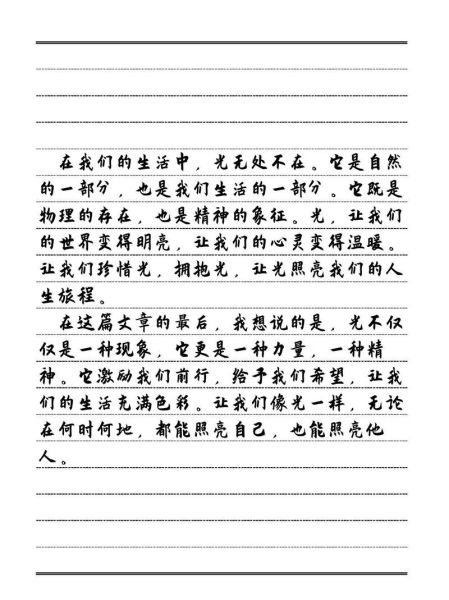 在我们的生活中，光无处不在。它是自然
的一部分，也是我们生活的一部分。它既是
物理的存在，也是精神的象征。光，让我们
的世界变得明亮，让我们的心灵变得温暖。
让我们珍惜光，拥抱光，让光照亮我们的人
生旅程。
在这篇文章的最后，我想说的是，光不仅
仅是一种现象，它更是一种力量，一种精
神。它激励我们前行，给予我们希望，让我
们的生活充满色彩。让我们像光一样，无论
在何时何地，都能照亮自己，也能照亮他
人。